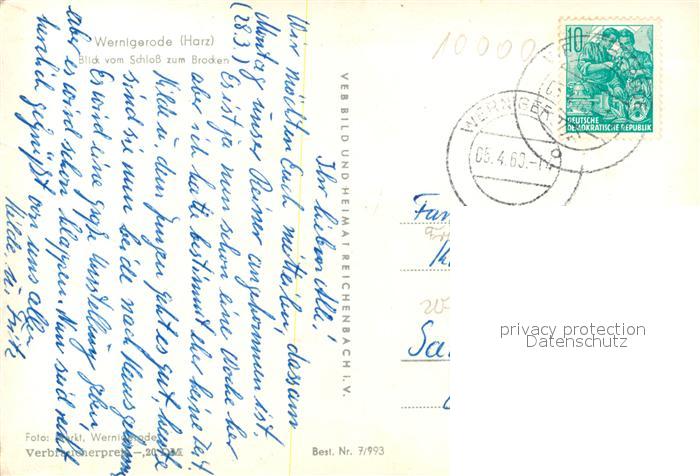 Wernigerode (Harz)
Blick vom Schloß zum Brocken
Ihr lieben Alle!
Wir möchten Euch mitteilen, dass am
Montag unser Rainer angekommen ist.
(28.3.) Es ist ja nun schon eine Woche her
aber ich hatte bestimmt eher keine Zeit.
Hilde u. dem Jungen geht es gut, heute
sind sie nun beide nach Hause gekomm
Es wird eine große Umstellung geben,
aber es wird schon klappen. Nun seid recht
herzlich gegrüßt von uns allen
Hilde, u. Fritz
Foto: Markt, Wernigerode
Verbraucherpreis —,20 DM
VEB BILD UND HEIMAT REICHENBACH I. V.
Best. Nr. 7/993
10000
10
DEUTSCHE
DEMOKRATISCHE REPUBLIK
WERNIGER
05.4.60.-14
Fam
Sa
privacy protection
Datenschutz